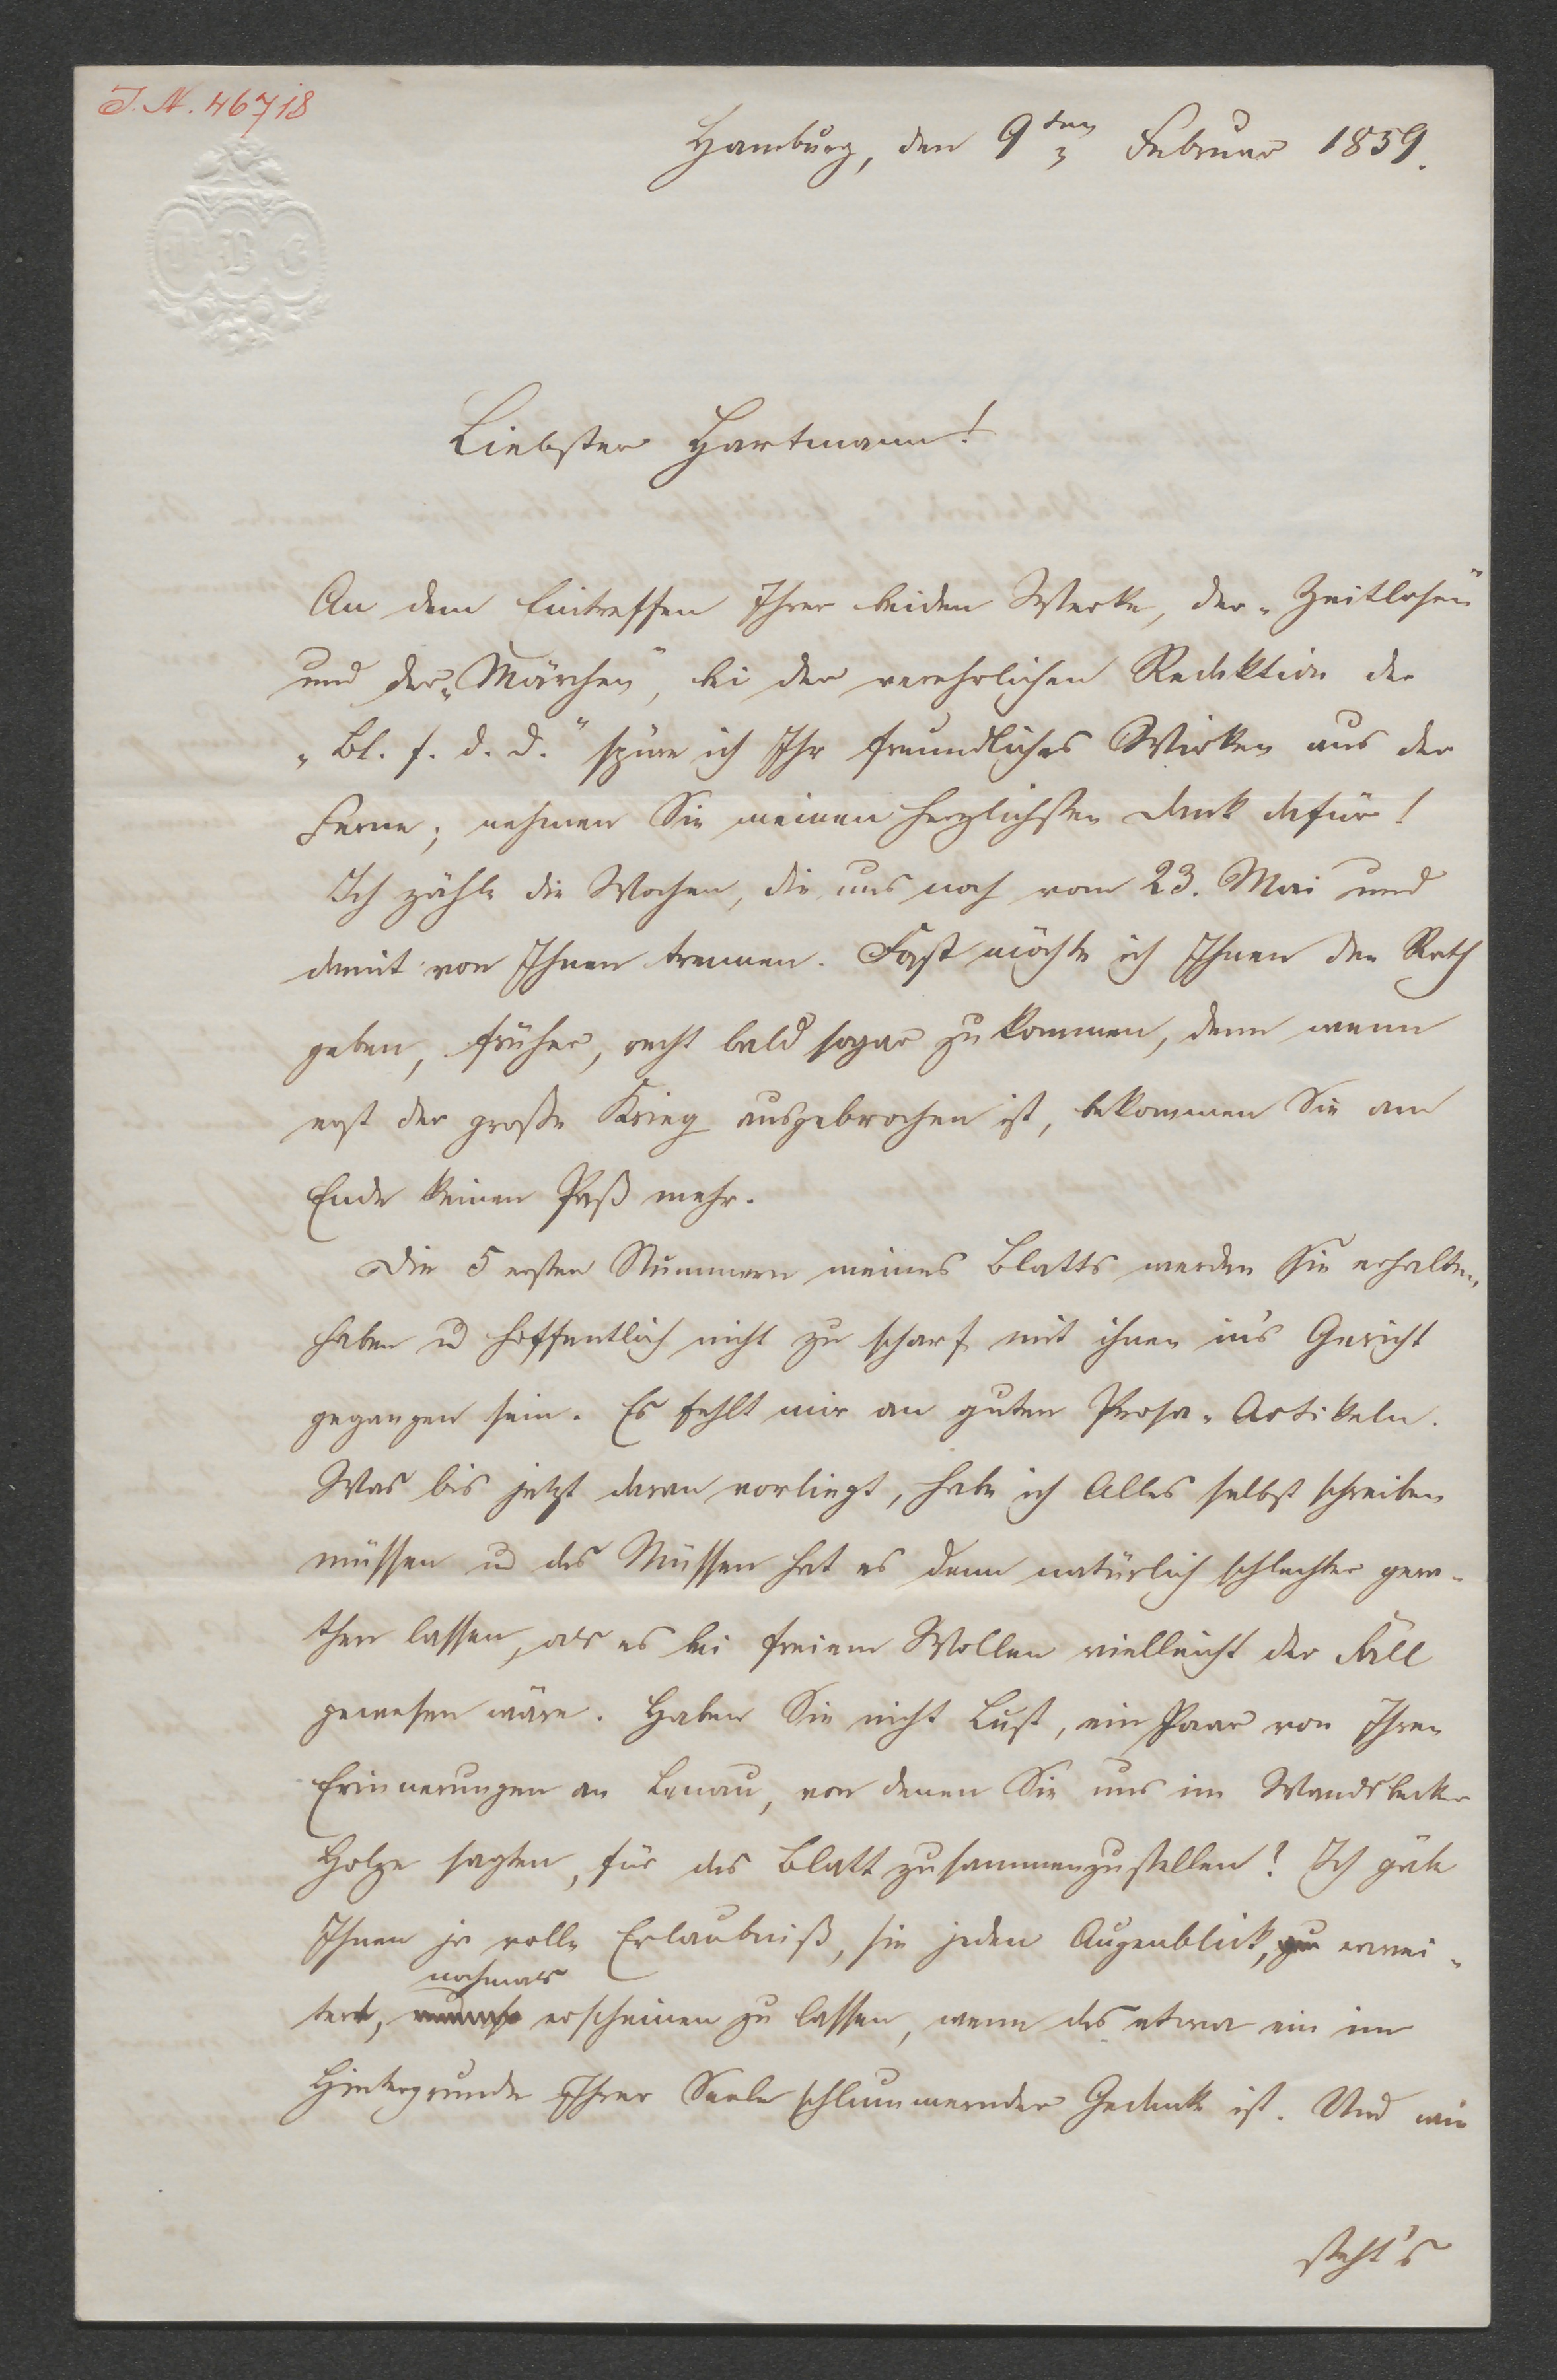 J. N. 46718
Hamburg, den 9ten Februar 1859.
Liebster Hartmann!
An dem Eintreffen Ihrer beiden Werke, der „Zeitlosen"
und der „Märchen", bei der verehrlichen Redaktion der
„Bl. f. d. D." spüre ich Ihr freundliches Wirken aus der
Ferne; nehmen Sie meinen herzlichsten Dank dafür!
Ich zähle die Wochen, die uns noch vom 23. Mai und
damit von Ihnen trennen. Fast möchte ich Ihnen den Rath
geben, früher, recht bald sogar zu kommen, denn wenn
erst der große Krieg ausgebrochen ist, bekommen Sie am
Ende keinen Paß mehr.
Die 5 ersten Nummern meines Blatts werden Sie erhalten
haben u hoffentlich nicht zu scharf mit ihnen in's Gericht
gegangen sein. Es fehlt mir an guten Prosa-Artikeln.
Was bis jetzt daran vorliegt, habe ich Alles selbst schreiben
müssen u das Müssen hat es denn natürlich schlechter gera-
then lassen, als es bei freiem Wollen vielleicht der Fall
gewesen wäre. Haben Sie nicht Lust, ein Paar von Ihren
Erinnerungen an Lenau, von denen Sie uns im Wandsbecker
Holze sagten, für das Blatt zusammenzustellen? Ich gäbe
Ihnen ja volle Erlaubniß, sie jeden Augenblick, zu erwei-
nochmals
tert, erscheinen zu lassen, wenn das etwa ein im
Hintergrunde Ihrer Seele schlummernder Gedanke ist. Und wie
steht's